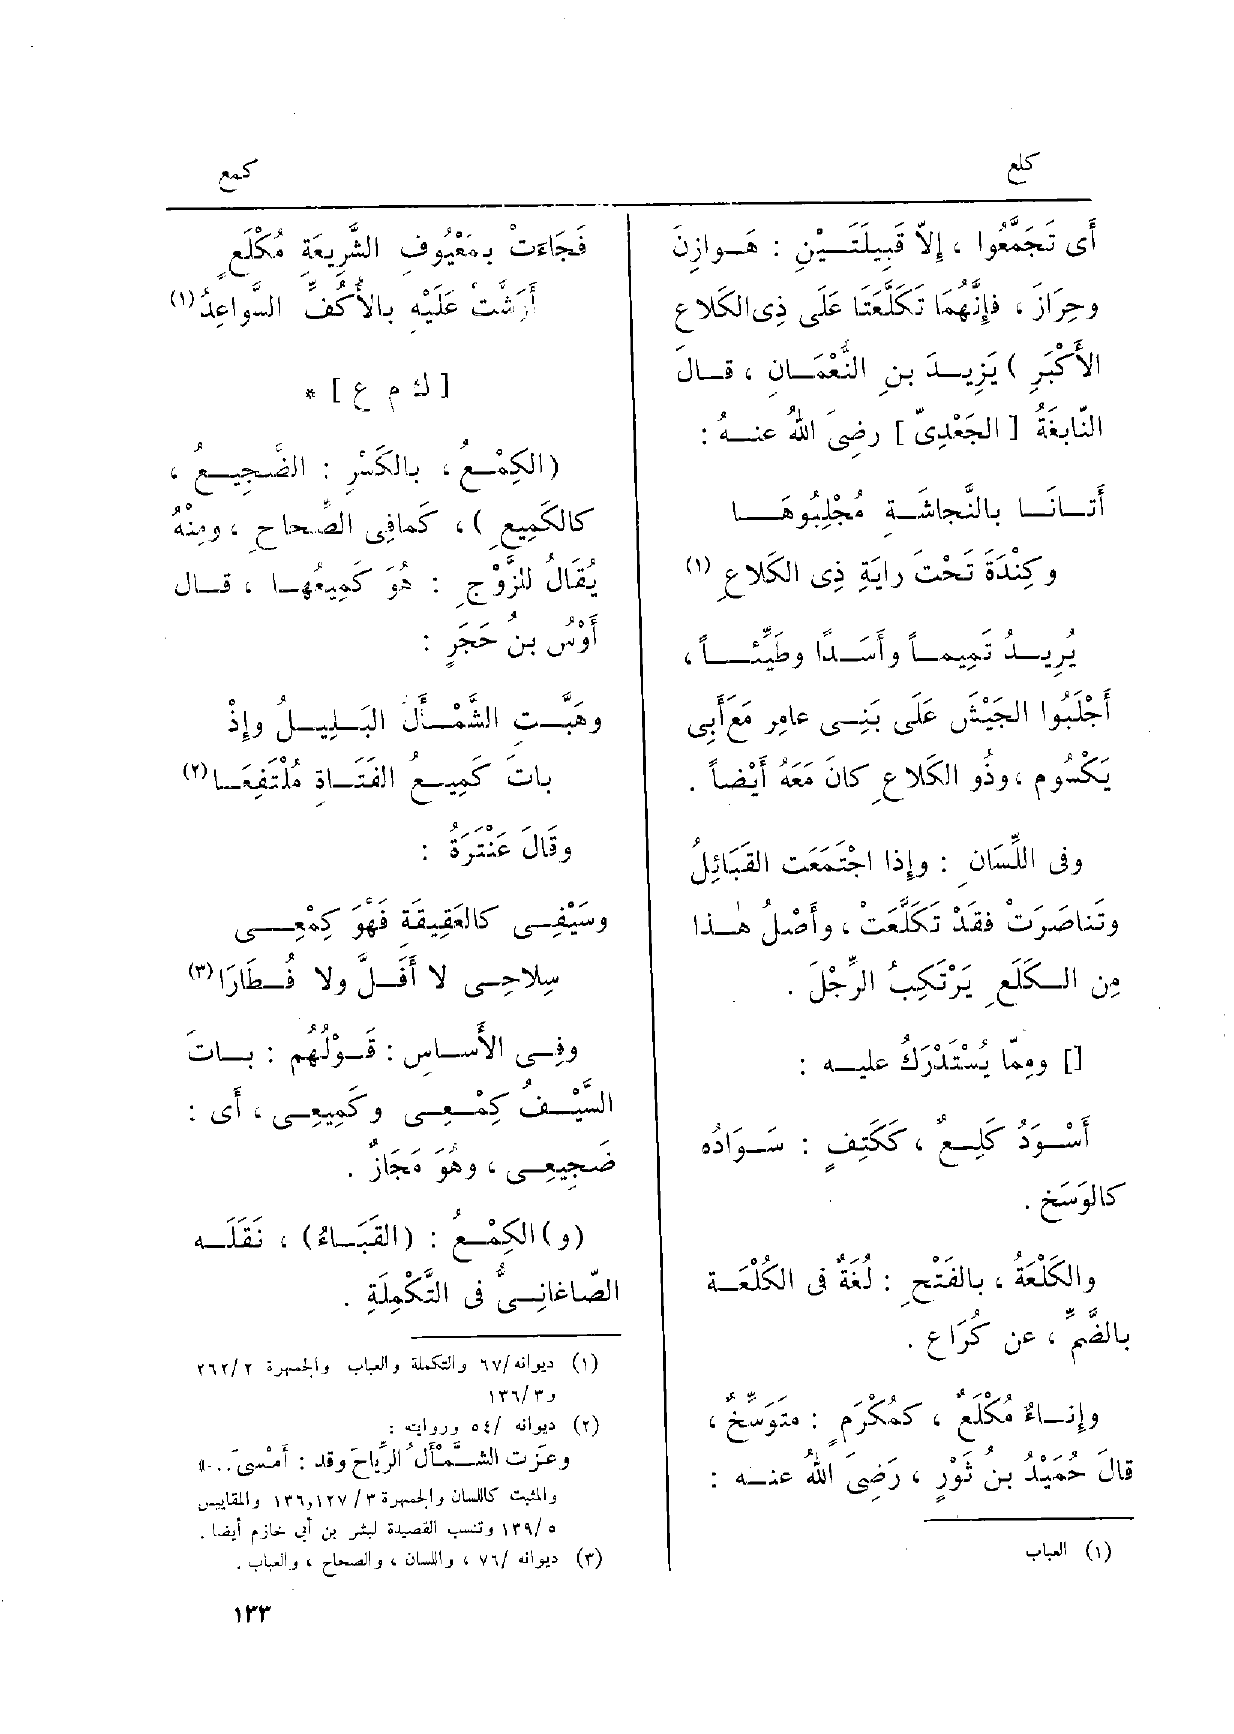 كلع
كمع
أى تَجَمَّعُوا ، إِلاّ قَبِيلَتَـيْنِ : هَـوازِنَ
وحِرَازَ ، فإِنَّهُمَا تَكَلَّعَتَا عَلَى ذِى الكَلاعِ
الأَكْبَرِ ) يَزِيـدَ بنِ النُّعْمَـانِ ، قـالَ
النّابِغَةُ [ الجَعْدِىّ ] رضِىَ اللهُ عنـهُ :
أَتـانَـا بالنَّجاشَـةِ مُجْلِبُوهَـا
وكِنْدَةَ تَحْتَ رايَةِ ذِى الكَلاعِ (١)
يُرِيـدُ تَمِيمـاً وأَسَـدًا وطَيِّئـاً ،
أَجْلَبُوا الجَيْشَ عَلَى بَنِـى عامِر مَعَ أَبِى
يَكْسُوم ، وذُو الكَلاعِ كانَ مَعَهُ أَيْضاً .
وفى اللِّسَانِ : وإِذا اجْتَمَعَت القَبَائِلُ
وتَناصَرَتْ فقَدْ تَكَلَّعَتْ ، وأَصْلُ هٰـذا
مِن الـكَلَعِ يَرْتَكِبُ الرِّجْلَ .
[] ومِمّا يُسْتَدْرَكُ عليـه :
أَسْـوَدُ كَلِـعٌ ، كَكَتِفٍ : سَـوَادُه
كالوَسَخِ .
والكَلْعَةُ ، بالفَتْحِ : لُغَةٌ فى الكُلْعَـةِ
بالضَّمِّ ، عن كُرَاع .
وإِنـاءٌ مُكْلَعٌ ، كمُكْرَمٍ : متَوَسِّخٌ ،
قالَ حُمَيْدُ بنُ ثَوْرٍ ، رَضِىَ اللهُ عنـه :
(١) العباب
فَجَاءَتْ بِمَعْيُوفِ الشَّرِيعَةِ مُكْلَعٍ
أَرَشَّتْ عَلَيْهِ بالأَكُفِّ السَّواعِدُ (١)
[ ك م ع ] *
(الكِمْـعُ ، بالكَسْرِ : الضَّجِيـعُ ،
كالكَمِيعِ ) ، كَمافِى الصِّحاحِ ، ومِنْهُ
يُقَالُ لِلزَّوْجِ : هُوَ كَمِيعُهـا ، قـال
أَوْسُ بنُ حَجَرٍ :
وهَبَّـتِ الشَّمْـأَلُ البَـلِيـلُ وإِذْ
باتَ كَمِيـعُ الفَتَـاةِ مُلْتَفِعَـا (٢)
وقَالَ عَنْتَرَةُ :
وسَيْفِـى كالعَقِيقَةِ فَهُوَ كِمْعِــى
سِلاحِـى لا أَفَـلَّ ولا فُـطَارَا (٣)
وفِـى الأَسـاسِ : قَـوْلُهُم : بـاتَ
السَّيْـفُ كِمْـعِـى وكَمِيعِـى ، أَى :
ضَجِيعِـى ، وهُوَ مَجَازٌ .
(و) الكِمْـعُ : (القَبَـاءُ) ، نَقَلَـه
الصّاغانِـىُّ فى التَّكْمِلَةِ .
(١) ديوانه /٦٧ والتكملة والعباب والجمهرة ٢ / ٢٦٢
و ٣ / ١٣٦
(٢) ديوانه /٥٤ وروايته :
وعزّت الشـمْأَلُ الرّياحَ وقد : أَمْسَى .. »
والمثبت كاللسان والجمهرة ٣ / ١٢٧ ,١٣٦ والمقاييس
٥ / ١٣٩ وتنسب القصيدة لبشر بن أبي خازم أيضا .
(٣) ديوانه /٧٦ ، واللسان ، والصحاح ، والعباب .
١٣٣